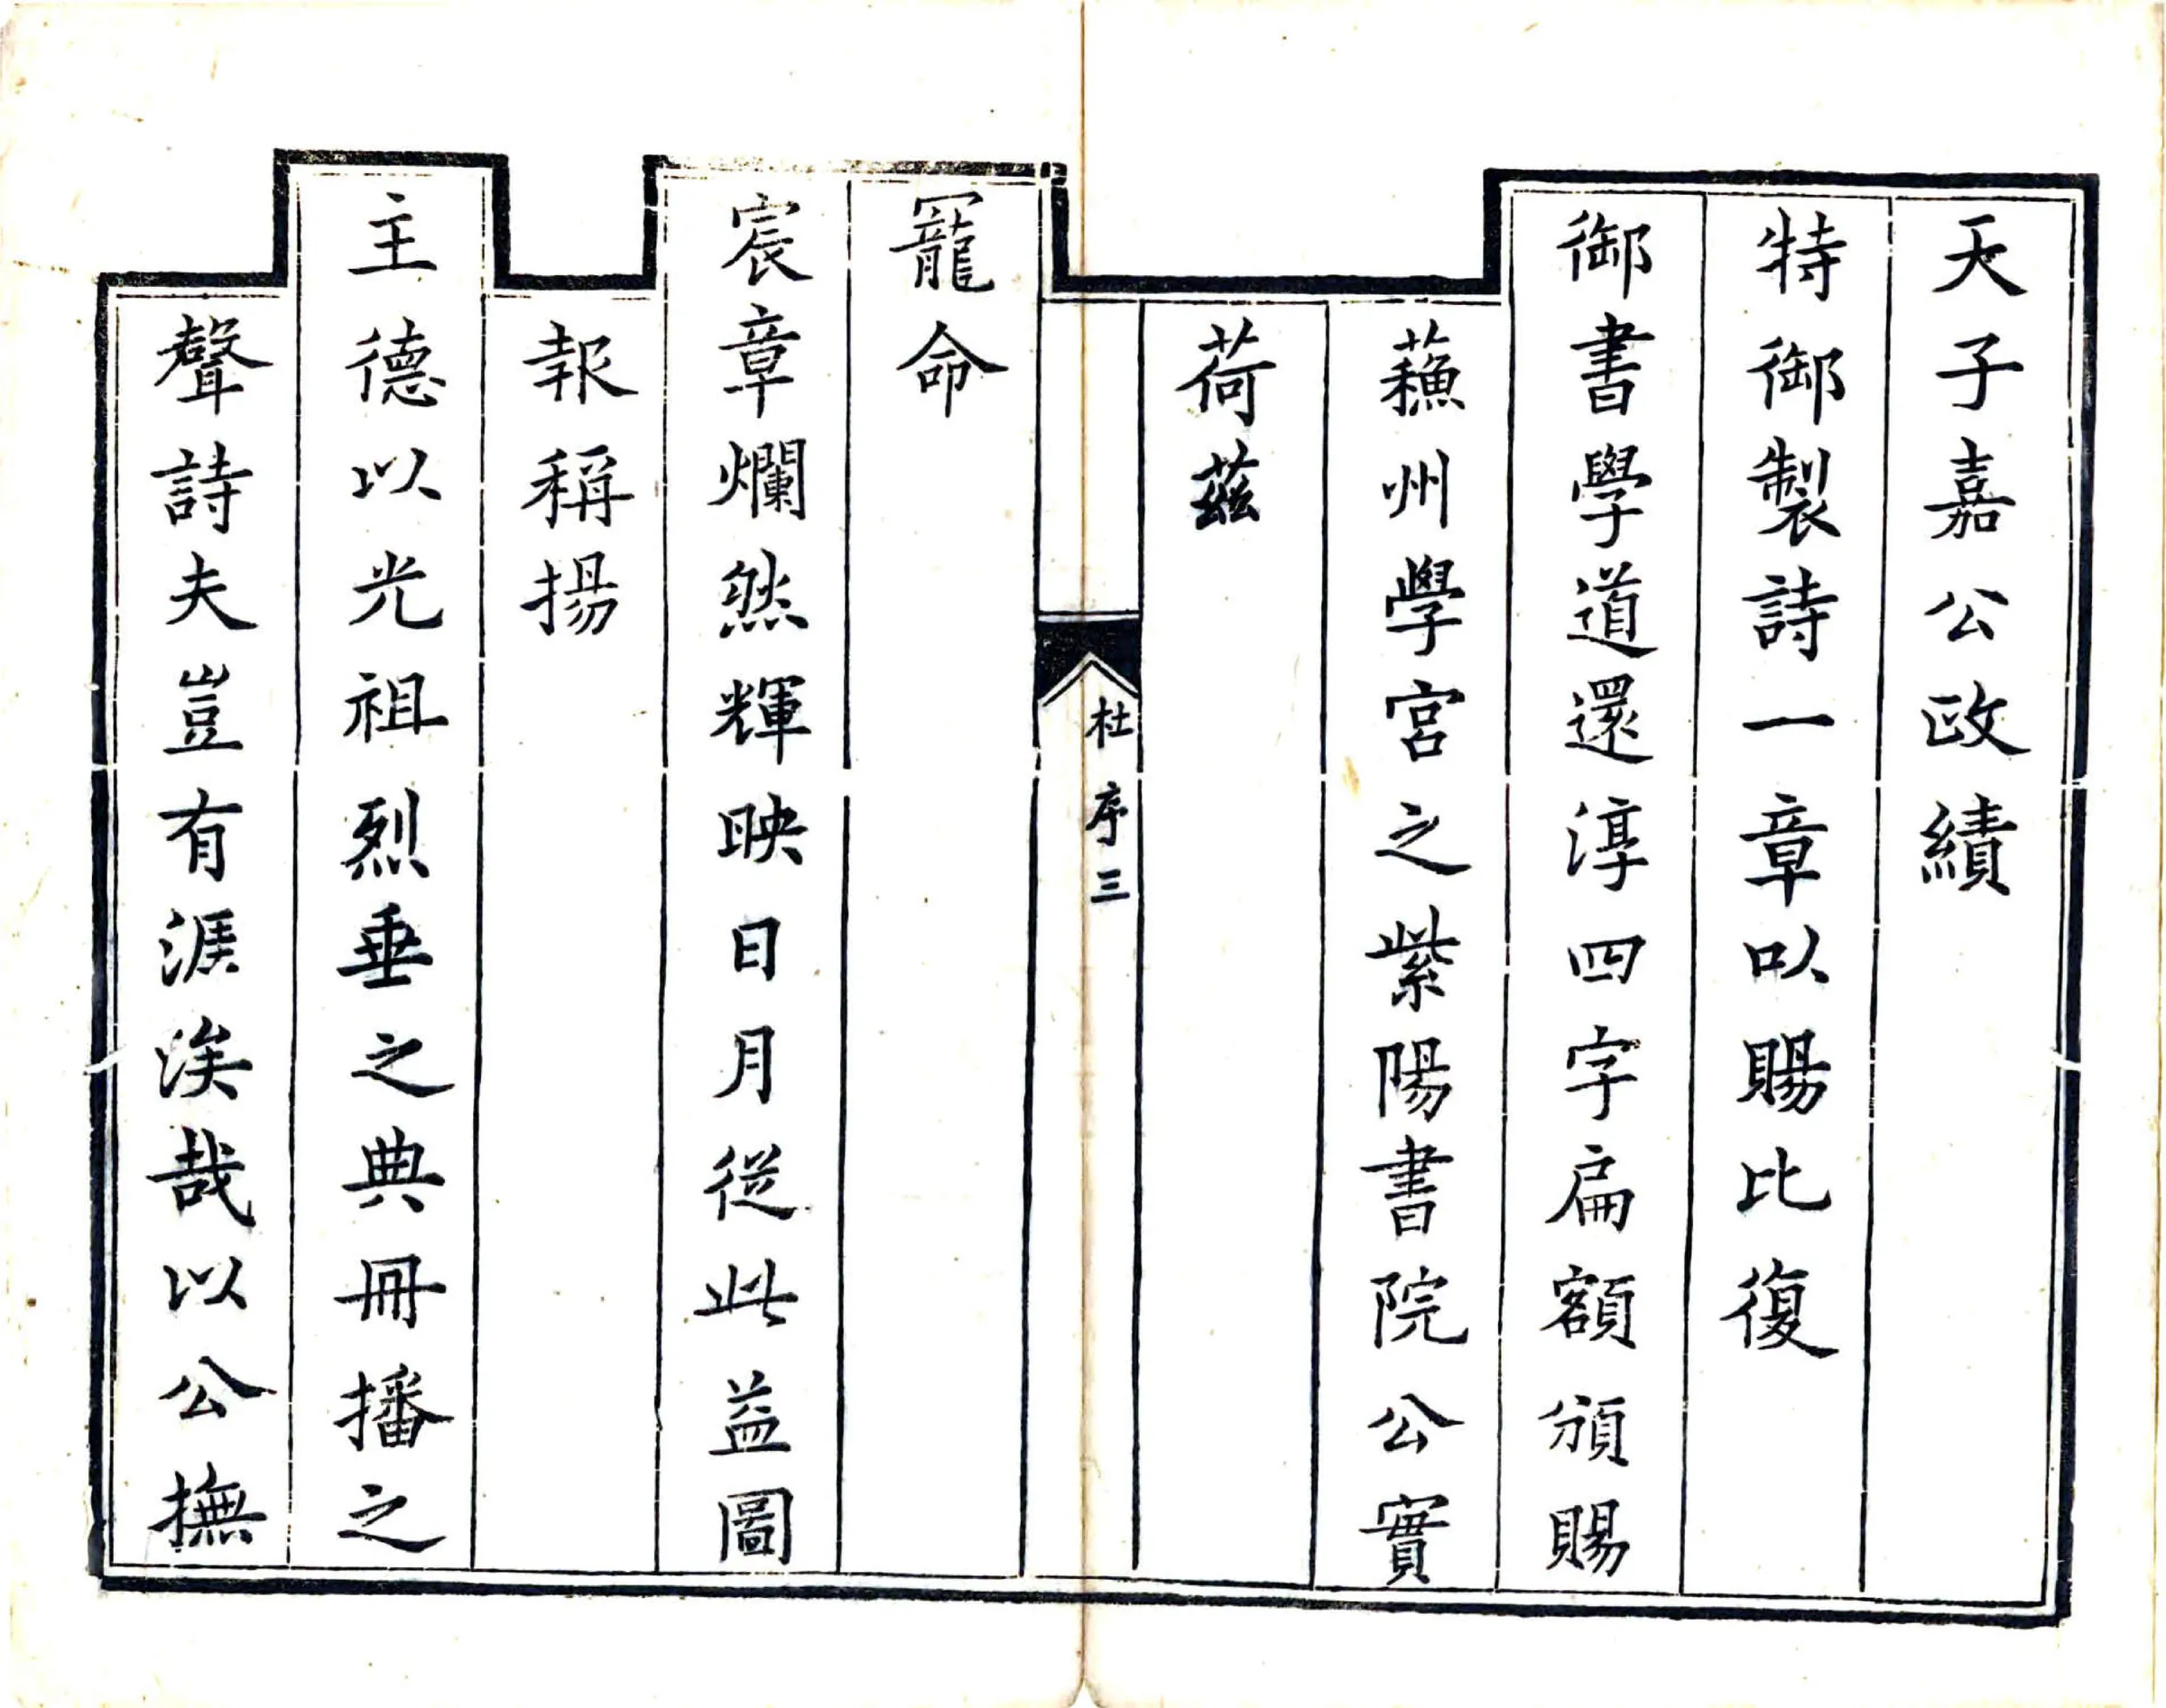 天子嘉公政績
特御製詩一章以賜比復
御書學道還淳四字扁額頒賜
蘓州學宮之紫陽書院公實
荷茲
杜序三
寵命
宸章爛然輝映日月從此益圖
報稱揚
主德以光祖烈垂之典冊播之
聲詩夫豈有涯涘哉以公撫